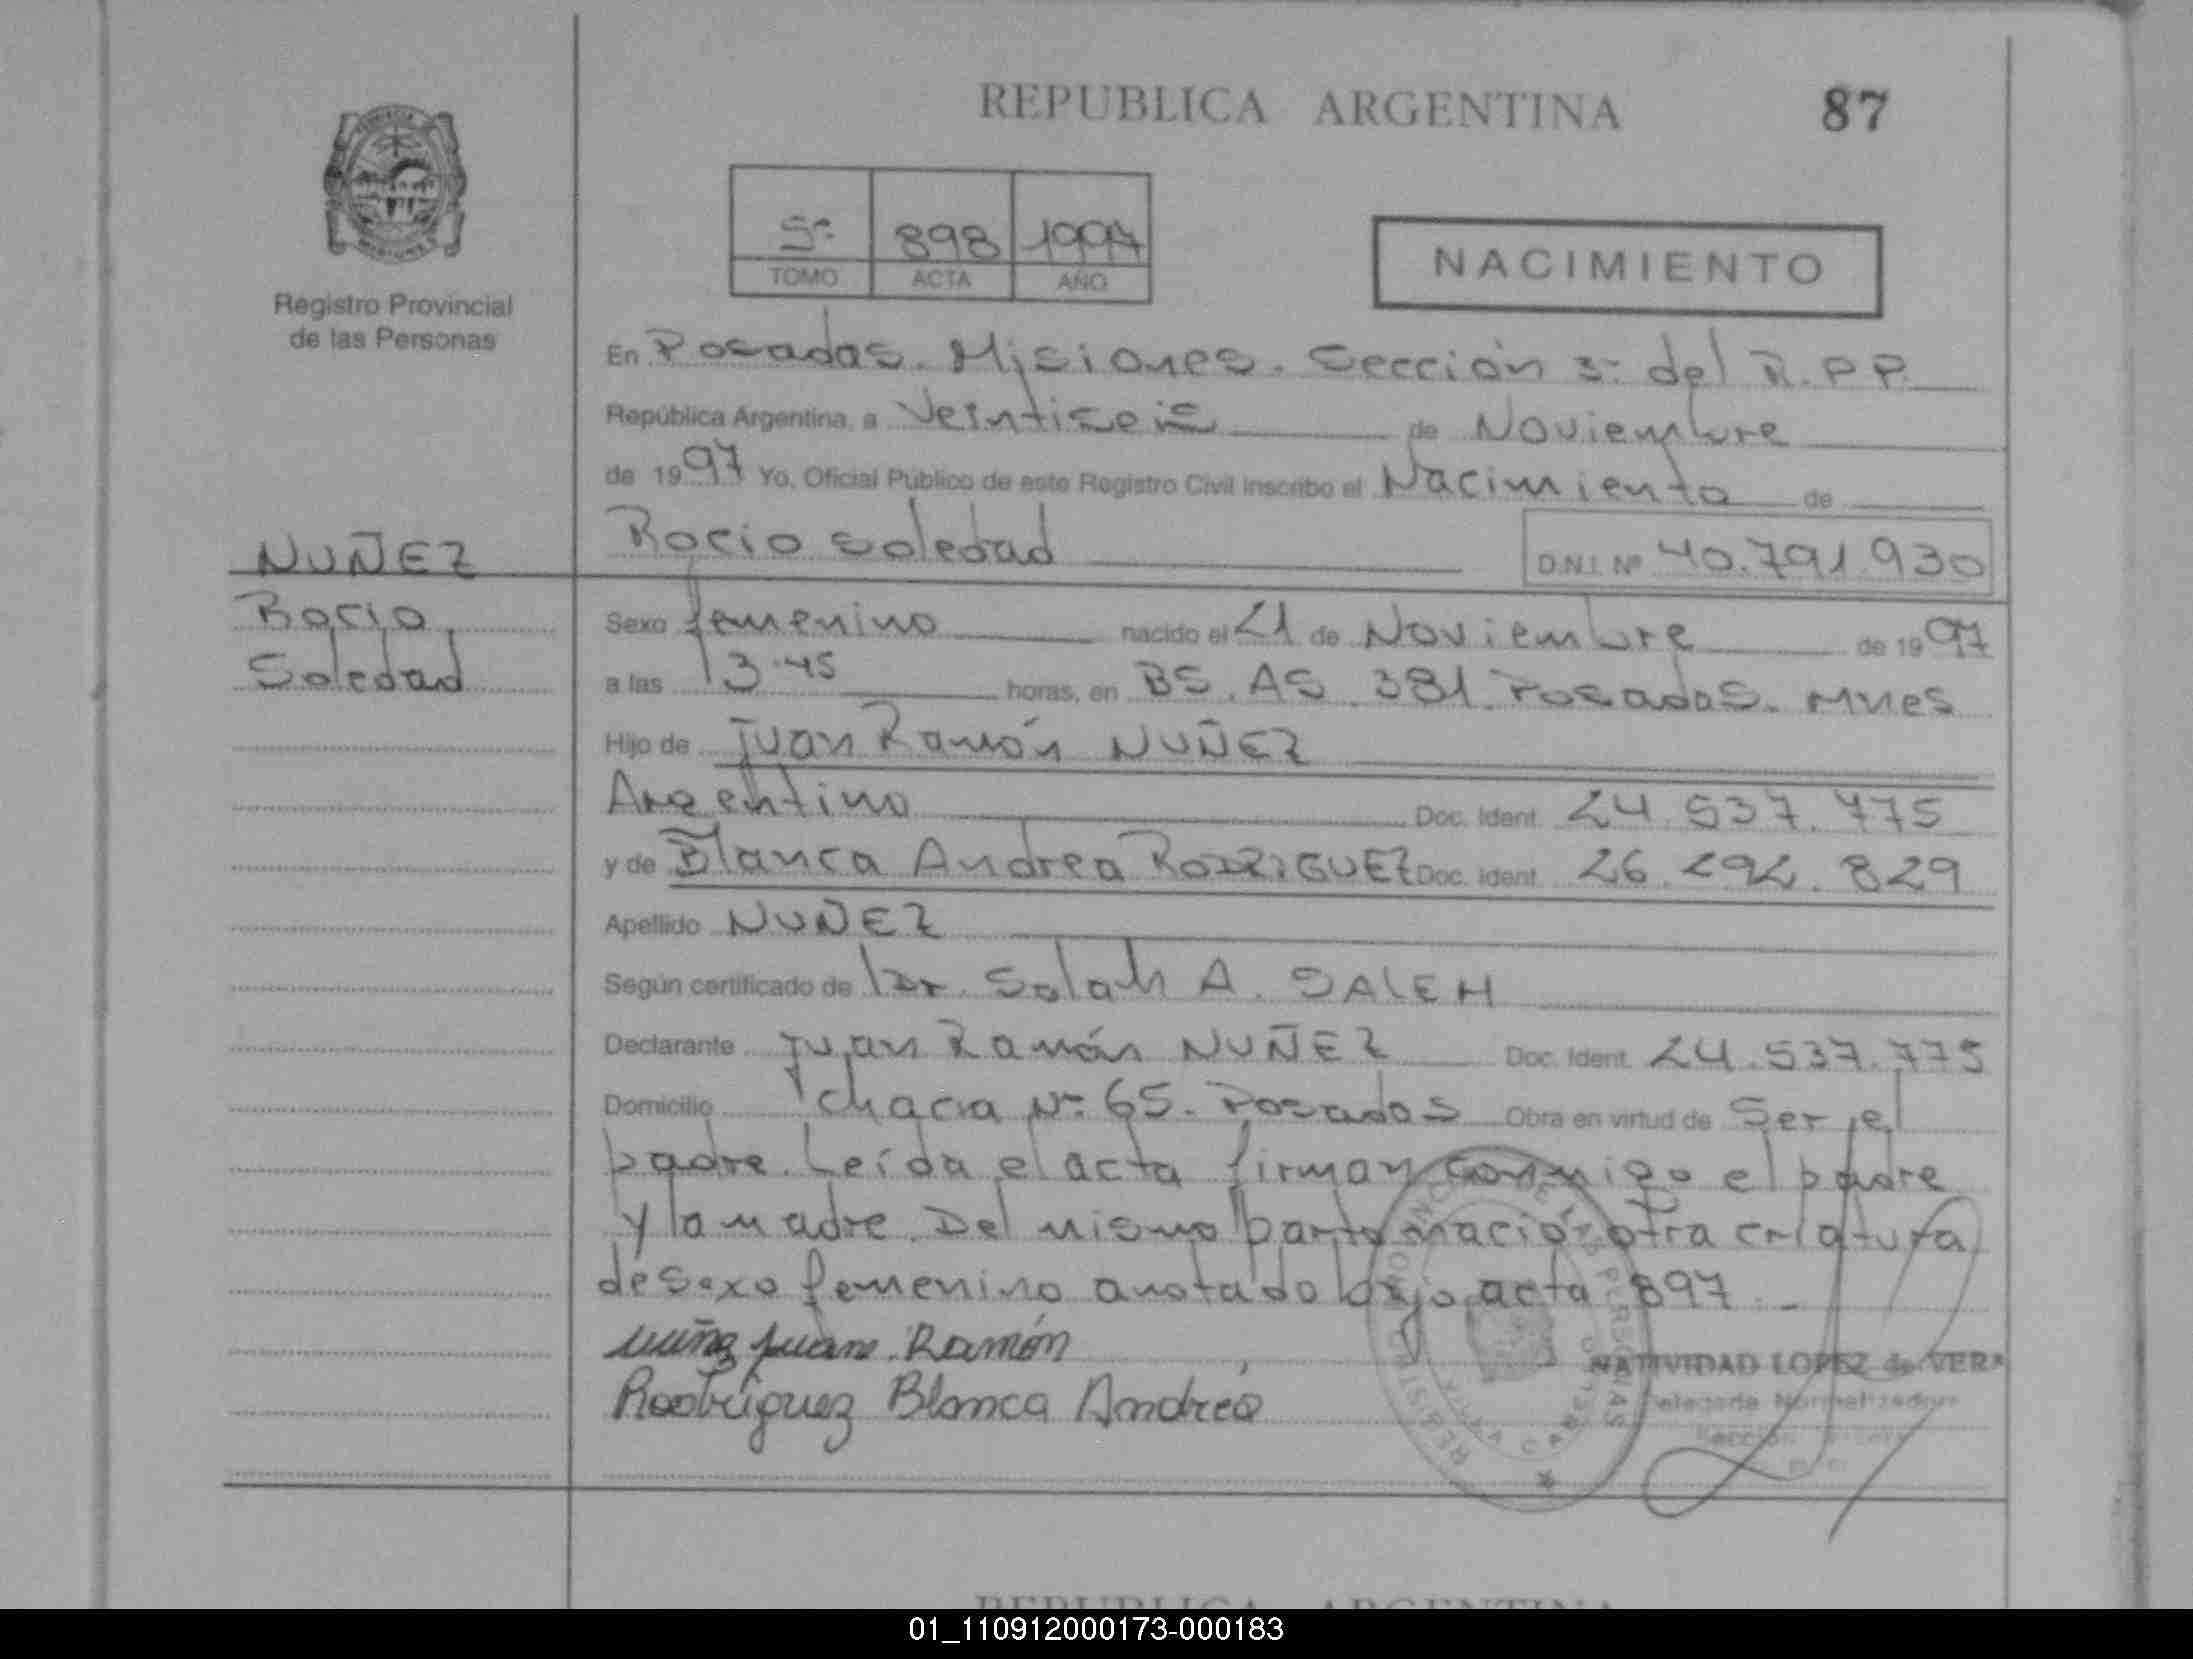 REPUBLICA ARGENTINA 87
Registro Provincial
de las Personas
5º 898 1997
TOMO ACTA AÑO
NACIMIENTO
En Posadas. Misiones. Sección 3º del R.P.P.
República Argentina, a Veintiseis de Noviembre
de 1997 Yo, Oficial Público de este Registro Civil inscribo el Nacimiento de
Rocio Soledad D.N.I. Nº 40.791.930
NUÑEZ
Rocio
Soledad
Sexo femenino nacido el 21 de Noviembre de 1997
a las 13.45 horas, en BS. AS. 381. Posadas. Mnes
Hijo de Juan Ramón NUÑEZ
Argentino Doc. Ident. 24.537.775
y de Blanca Andrea RODRIGUEZ Doc. Ident. 26.292.829
Apellido NUÑEZ
Según certificado de Dr. Salah A. SALEH
Declarante Juan Ramón NUÑEZ Doc. Ident. 24.537.775
Domicilio Chacra Nº 65. Posadas Obra en virtud de Ser el
padre. Leída el acta firman conmigo el padre
y la madre. Del mismo parto nació otra criatura
de sexo femenino anotado bajo acta 897.-
Nuñez Juan Ramón
Rodriguez Blanca Andrea
NATIVIDAD LOPEZ de VERA
Delegada Normalizadora
REPUBLICA ARGENTINA
01_110912000173-000183